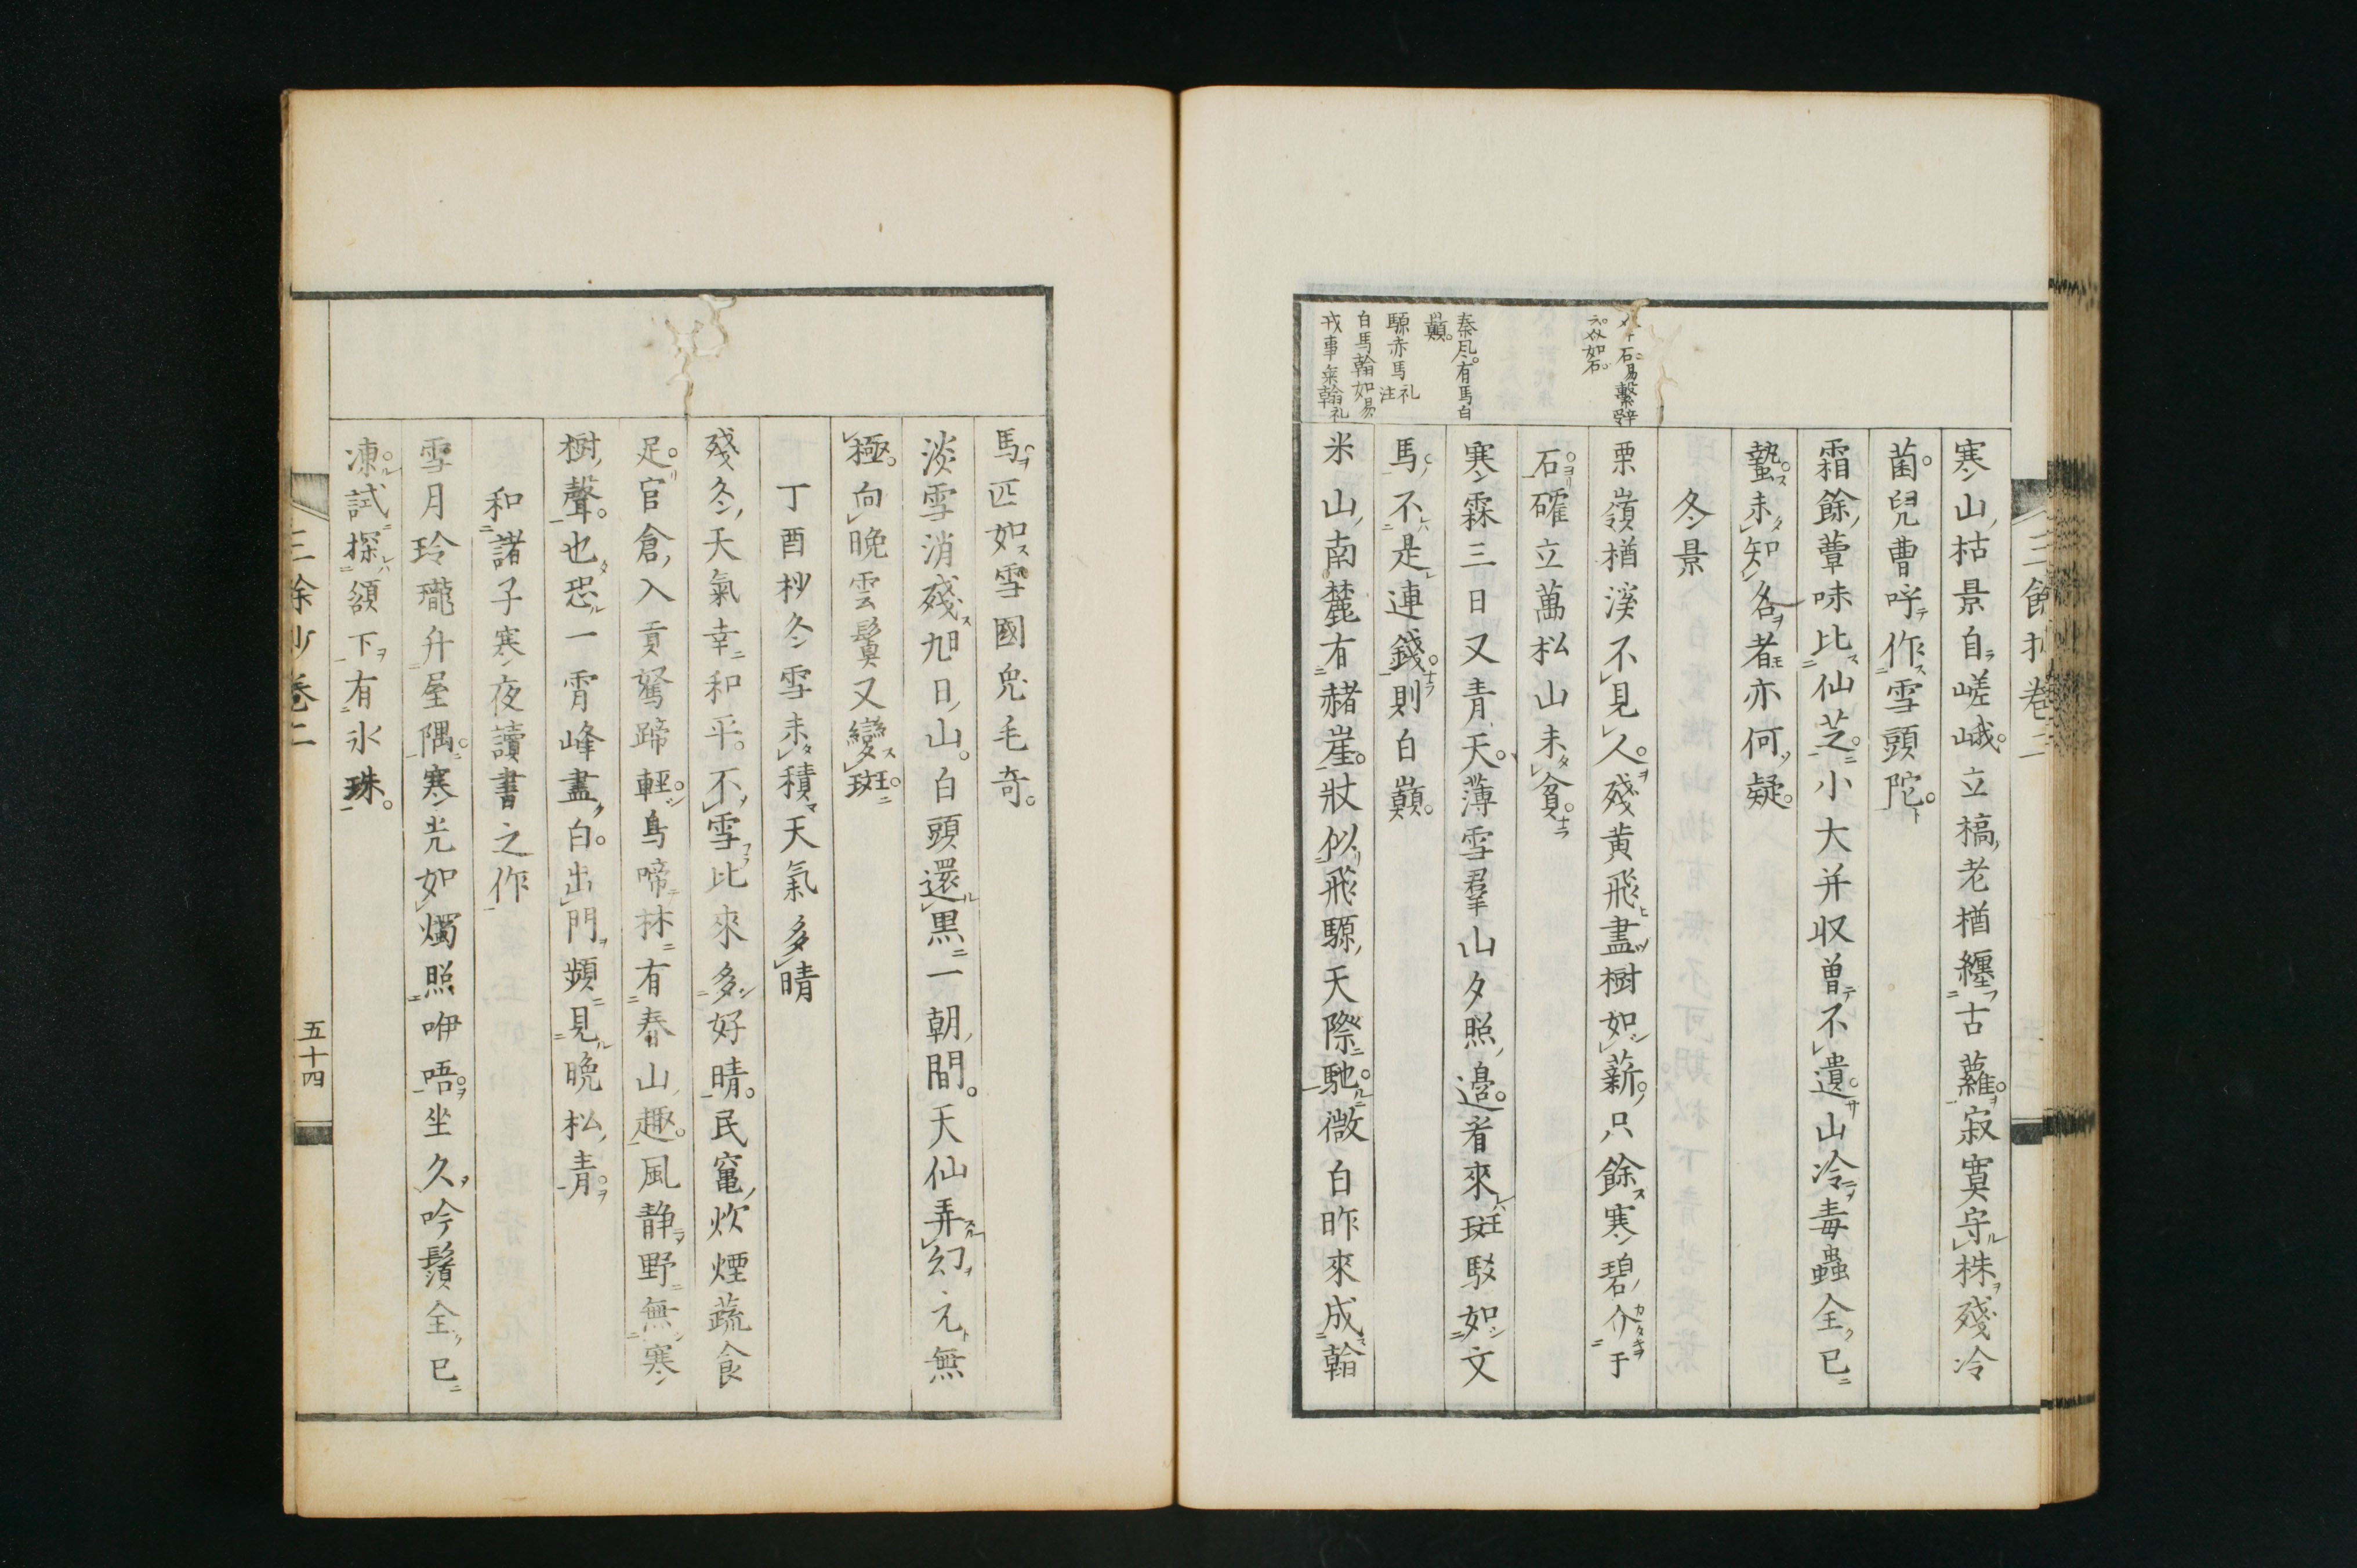 三餘抄卷二
寒山枯景自嵯峨立槁老楢纏古蘿寂寞守株殘冷
菌兒曹呼作雪頭陀
霜餘蕈味比仙芝小大并収曽不遺山冷毒蟲全已
蟄未知名者亦何疑
冬景
栗嶺楢溪不見人殘黄飛盡樹如薪只餘寒碧介于
石確立萬松山未貧
寒霖三日又青天薄雪羣山夕照邉看來斑駁如文
馬不是連錢則白巔
米山南麓有赭崖壯似飛騵天際馳微白昨來成翰
石易繫辞
介如石
秦風有馬白
顛
騵赤馬礼注
白馬翰如易
戎事乗翰礼
馬匹如雪國兜毛奇
淡雪消殘旭日山白頭還黒一朝間天仙弄幻元無
極向晩雲鬟又變斑
丁酉杪冬雪未積天氣多晴
殘冬天氣幸和平不雪比來多好晴民竃炊煙蔬食
足官倉入貢駑蹄輕鳥啼林有春山趣風静野無寒
樹聲也恐一宵峰盡白出門頻見晩松青
和諸子寒夜讀書之作
雪月玲瓏升屋隅寒光如燭照咿唔坐久吟鬚全已
凍試探頷下有氷珠
三餘抄卷二
五十四